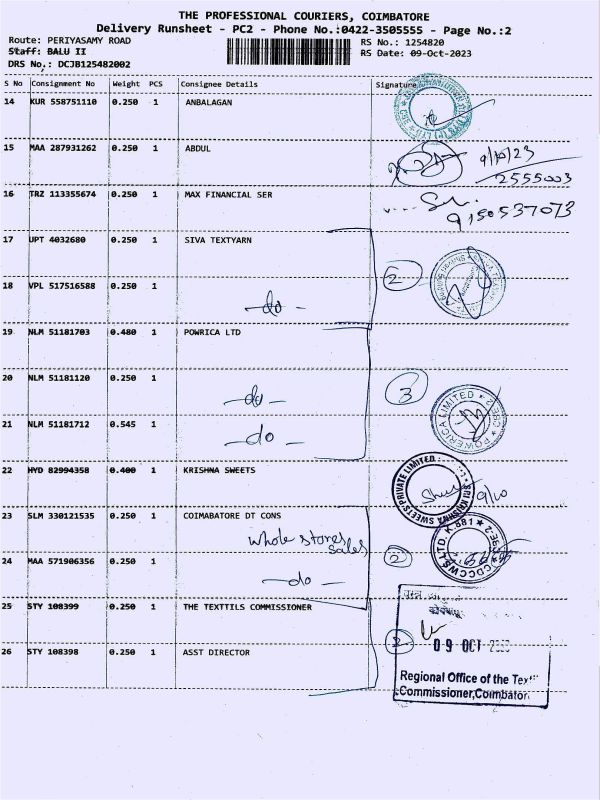 THE PROFESSIONAL COURIERS, COIMBATORE
Delivery Runsheet - PC2 - Phone No.:0422-3505555 - Page No.:2
Route: PERIYASAMY ROAD
RS No.: 1254820
Staff: BALU II
RS Date: 09-Oct-2023
DRS No.: DCJB125482002
S No Consignment No Weight PCS Consignee Details Signature
14 KUR 558751110 0.250 1 ANBALAGAN
15 MAA 287931262 0.250 1 ABDUL 9/10/23
2555003
16 TRZ 113355674 0.250 1 MAX FINANCIAL SER
9150537073
17 UPT 4032680 0.250 1 SIVA TEXTYARN
2
18 VPL 517516588 0.250 1
-do-
19 NLM 51181703 0.480 1 POWRICA LTD
20 NLM 51181120 0.250 1
-do-
3
POWERICA LIMITED
CBE-2
21 NLM 51181712 0.545 1
-do-
22 HYD 82994358 0.400 1 KRISHNA SWEETS
SRI KRISHNA SWEETS PRIVATE LIMITED
9/10
23 SLM 330121535 0.250 1 COIMABATORE DT CONS
whole stores
sales
CDCCWS LTD. K.881
CBE-2
2
24 MAA 571906356 0.250 1
-do-
25 STY 108399 0.250 1 THE TEXTTILS COMMISSIONER
2
09 OCT
26 STY 108398 0.250 1 ASST DIRECTOR
Regional Office of the
Commissioner, Coimbatore